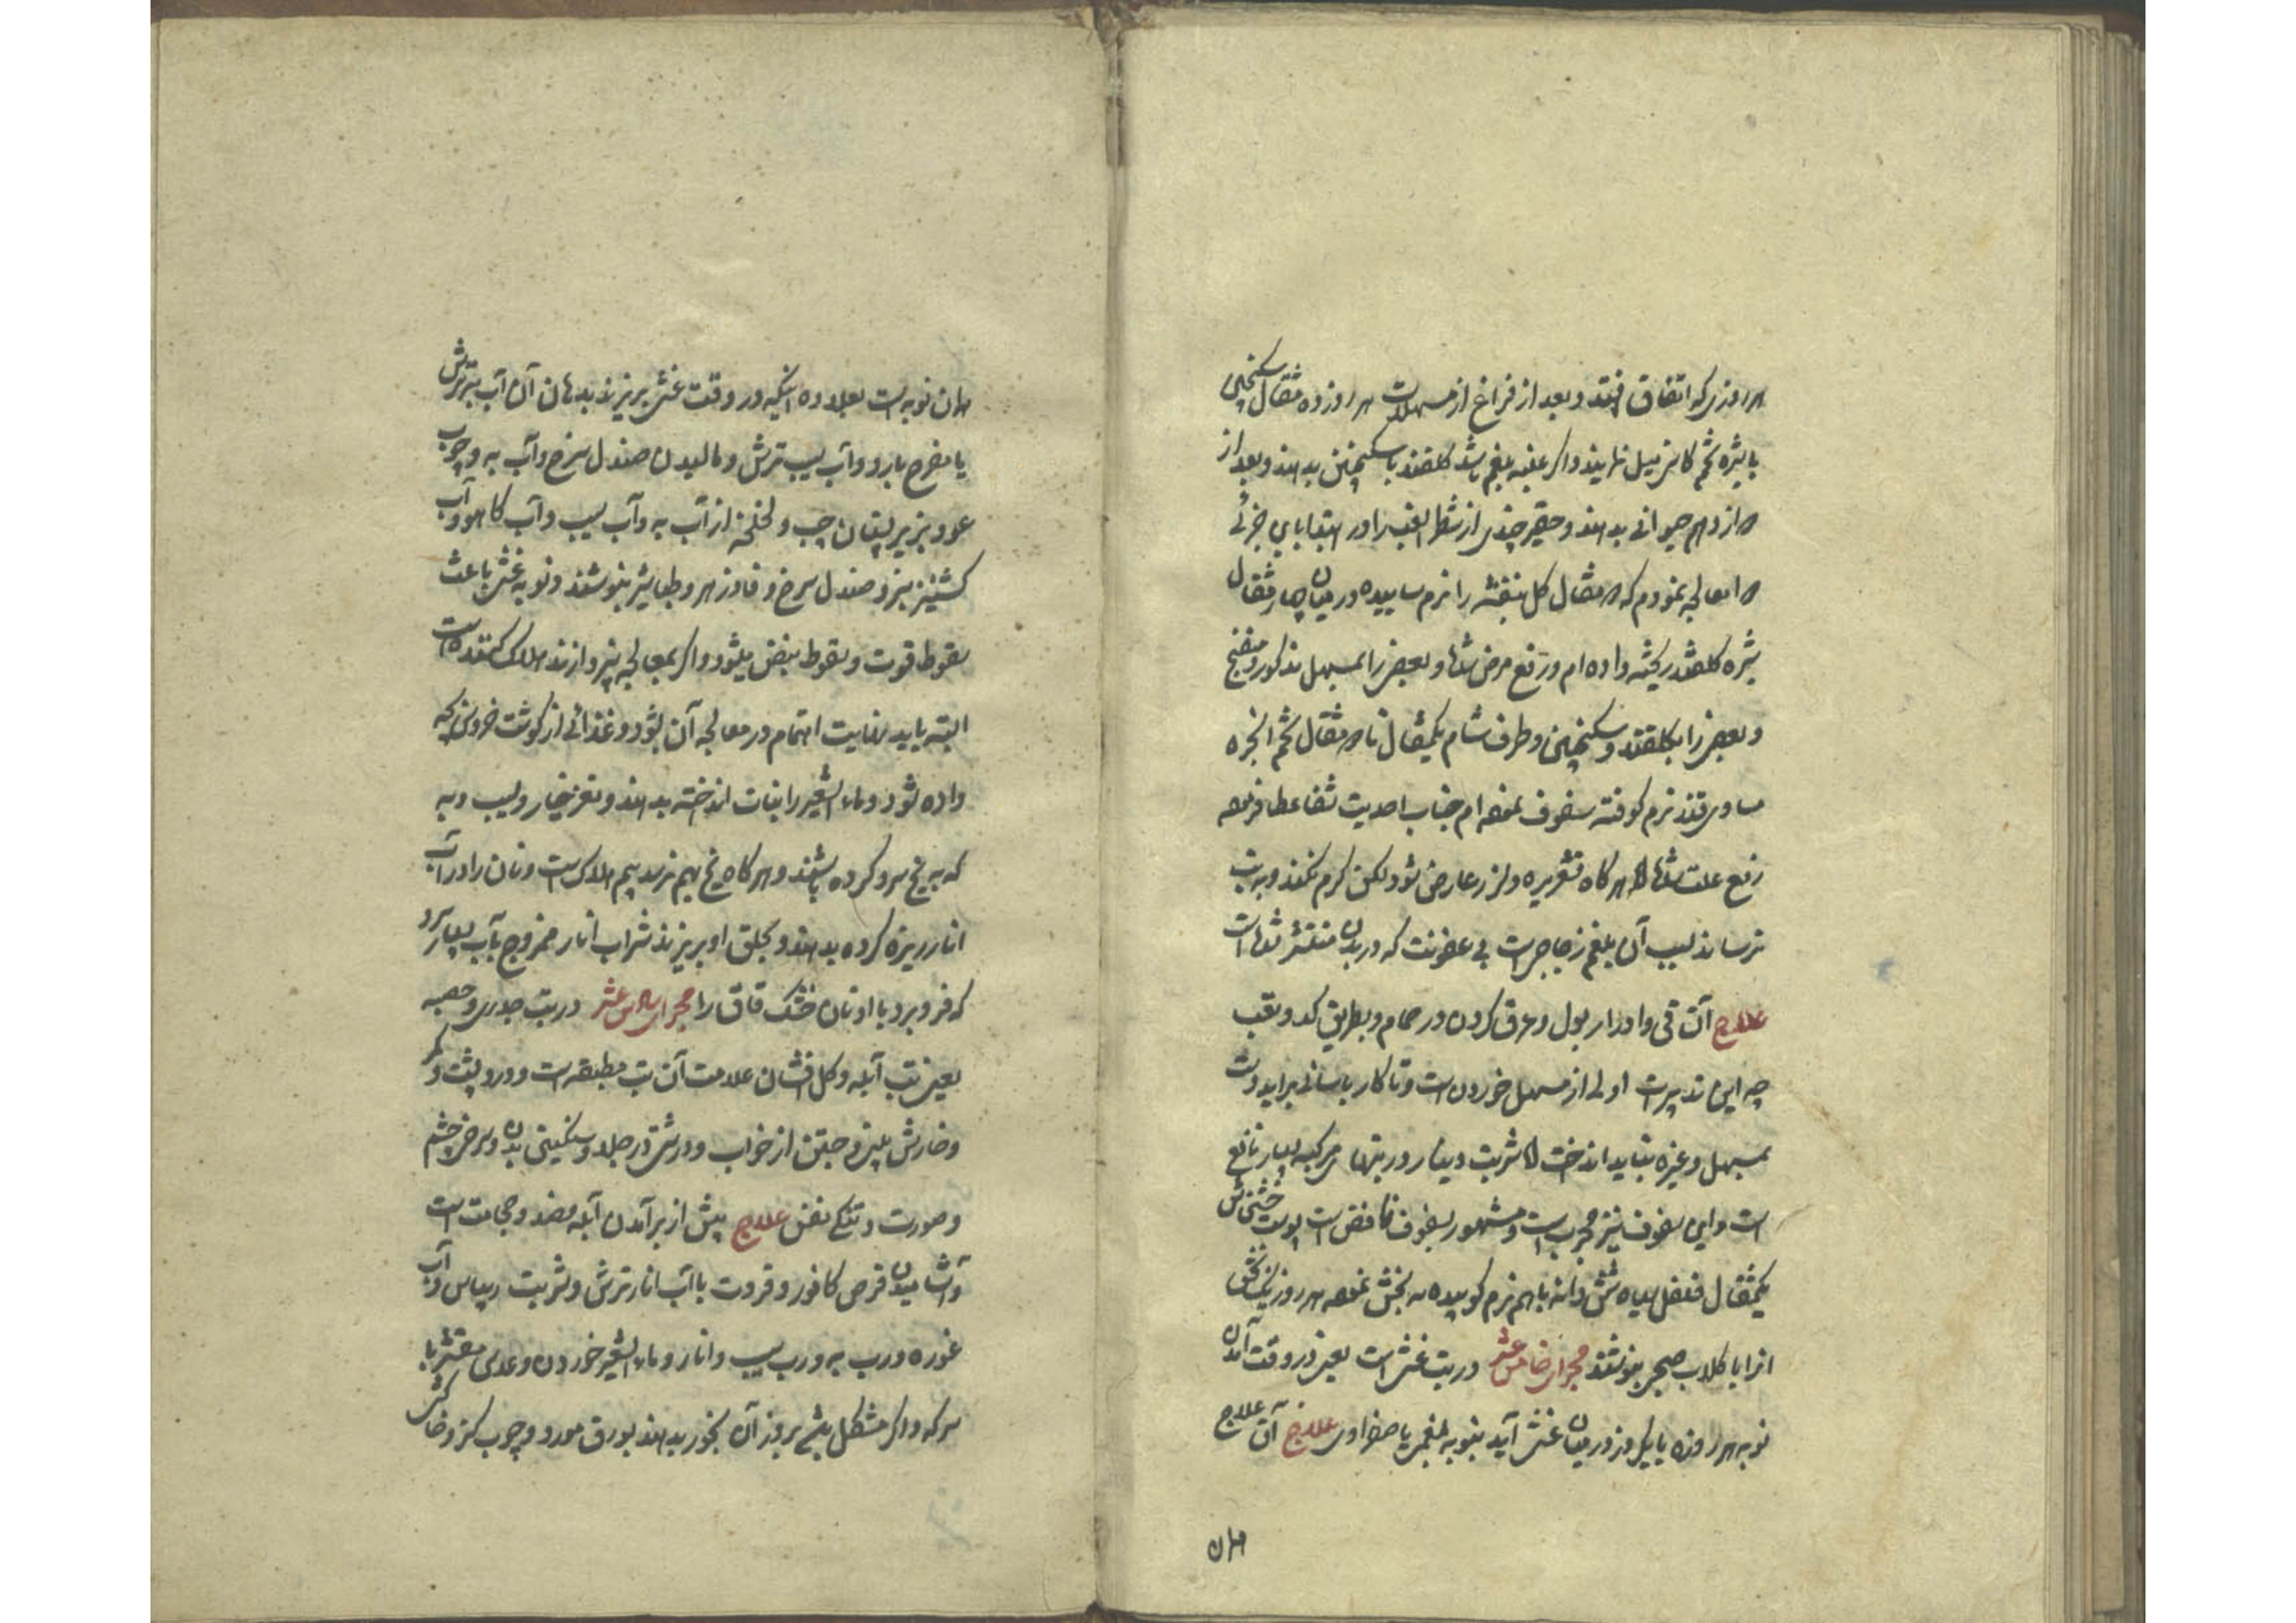 هر روزی که اتفاق افتد و بعد از فراغ از مسهلات هر روز ده مثقال سکنجبین
با شیره تخم کاسنی میل نمایند و اگر غلبه بلغم باشد گلقند با سکنجبین بدهند و بعد از
دوازدهم حیوانی بدهند و حقیر چندی از شطر الغب را در ابتدا بای جزئی
معالجه نمودم که مثقال گل بنفشه را نرم ساییده در میان چهار مثقال
شیره گلقند ریخته داده ام و رفع مرض شده و بعضی را بمسهل مذکور و منضج
و بعضی را بگلقند و سکنجبین و طرف شام یکمثقال تا مثقال تخم انجره
مساوی قند نرم کوفته سفوف نموده ام جناب احدیت شفا عطا فرموده
رفع علت شده هرگاه قشعریره و لرز عارض شود لکن گرم نکند و به تب
نرساند سبب آن بلغم زجاجی است بی عفونت که در بدن منتشر شده است
علاج آن قی و ادرار بول و عرق کردن در حمام و بطریق کد و تعب
چه این تدبیرات اولی از مسهل خوردن است و تا کار باسانی براید دست
بمسهل و غیره نباید انداخت شربت دینار در تبهای مرکبه بسیار نافع
است و این سفوف نیز مجرب است و مشهور بسفوف نافض است پوست خشخاش
یکمثقال فلفل سیاه شش دانه باهم نرم کوبیده سه بخش نموده هر روز یک بخش
انرا با گلاب صبحی بنوشند مجرای خامس عشر در تب غشی است یعنی در وقت آمدن
نوبه هر روزه یا یکروز در میان غشی آید بنوبه بلغمی یا صفراوی علاج آن علاج
همان
همان نوبه است بعلاوه اینکه در وقت غشی بریزند بدهان آن آب به ترش
یا مفرح بارد و آب سیب ترش و مالیدن صندل سرخ و آب به و چوب
عود بزیر پستان چپ و لخلخه از آب به و آب سیب و آب کاهو و آب
کشنیز سبز و صندل سرخ و فادزهر و طباشیر بنوشند و نوبه غشی باعث
سقوط قوت و سقوط نبض میشود و اگر بمعالجه نپردازند هلاک کننده است
البته باید نهایت اهتمام در معالجه آن بشود و غذائی از گوشت خروس بچه
داده شود و ماء الشعیر را نبات انداخته بدهند و مغز خیار و سیب و به
که به یخ سرد کرده باشند و هرگاه یخ بهم نرسد بیم هلاک است و نان را در آب
انار ریزه کرده بدهند و بحلق او بریزند شراب انار ممزوج بآب بسیار سرد
که فرو برد با او نان خشک قاق را مجرای سادس عشر در تب جدری و حصبه
یعنی تب آبله و گل افشان علامت آن تب مطبقه است و درد پشت و کمر
و خارش بینی و جستن از خواب و درشتی در جلد و سنگینی بدن و سرخی چشم
و صورت و تنگی نفس علاج پیش از برآمدن آبله فصد و حجامت است
و آشامیدن قرص کافور و قروت با آب انار ترش و شربت ریباس و آب
غوره و رب به و رب سیب و انار و ماء الشعیر خوردن و عدس مقشر با
سرکه و اگر مشکل باشد بروز آن بخور بدهند بورق مورد و چوب گز و خاکش